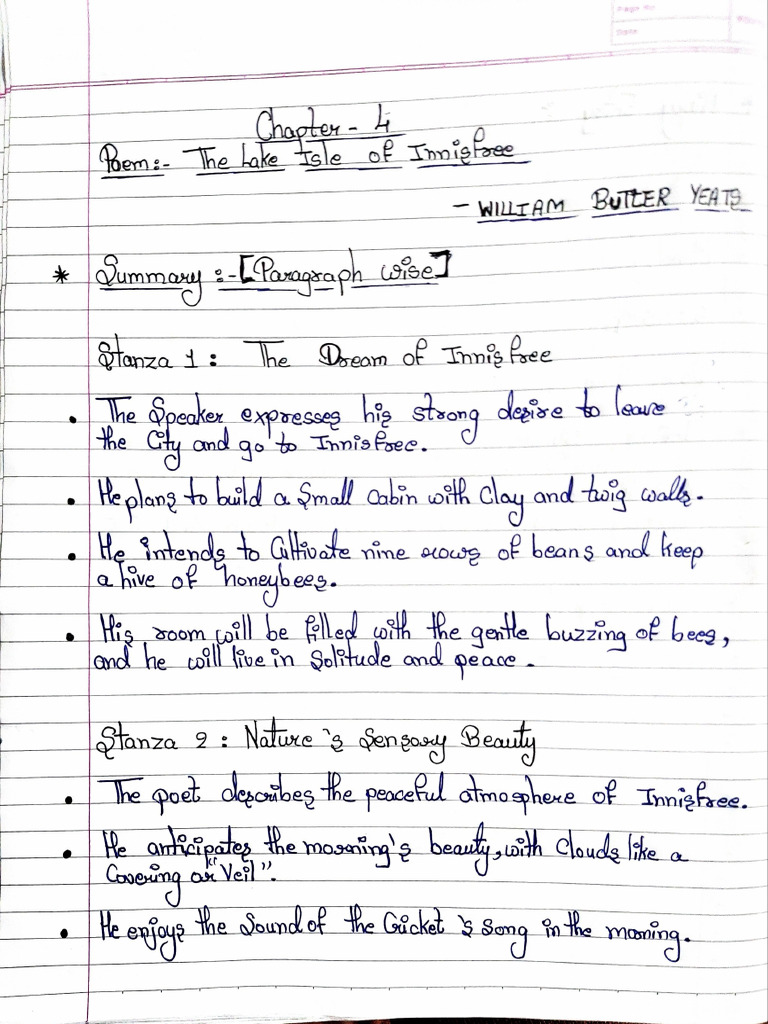 Page No
Date
Chapter - 4
Poem:- The Lake Isle of Innisfree
- WILLIAM BUTLER YEATS
* Summary :- [Paragraph wise]
Stanza 1 : The Dream of Innisfree
• The Speaker expresses his strong desire to leave
the City and go to Innisfree.
• He plans to build a Small Cabin with Clay and twig walls.
• He intends to Cultivate nine rows of beans and keep
a hive of honeybees.
• His room will be filled with the gentle buzzing of bees,
and he will live in Solitude and peace.
Stanza 2 : Nature's Sensory Beauty
• The poet describes the peaceful atmosphere of Innisfree.
• He anticipates the morning's beauty, with Clouds like a
Covering or "Veil".
• He enjoys the Sound of the Cricket's Song in the morning.